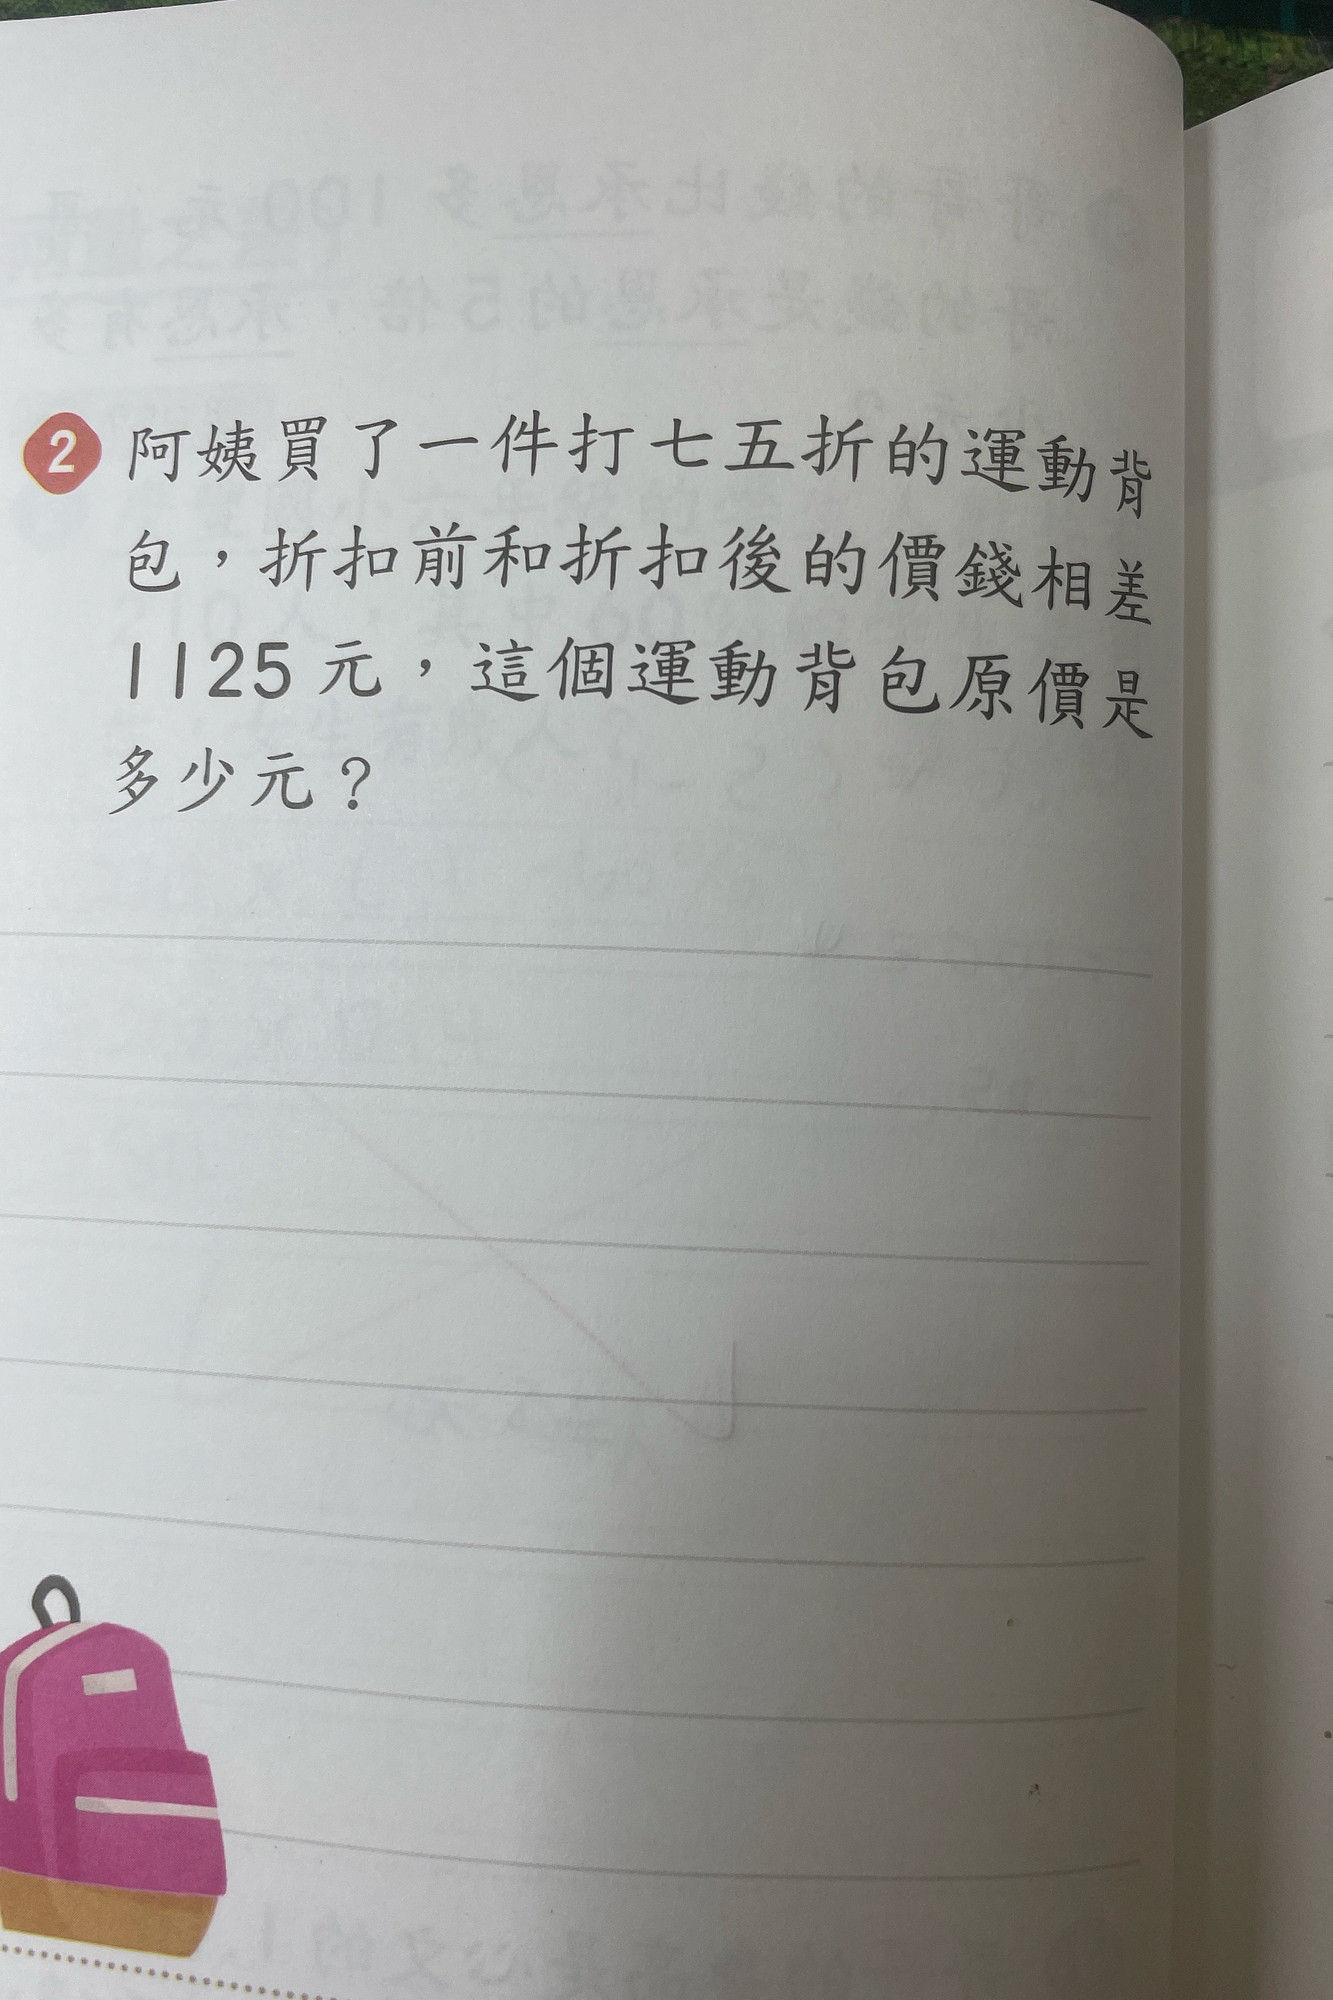 2 阿姨買了一件打七五折的運動背
包，折扣前和折扣後的價錢相差
1125元，這個運動背包原價是
多少元？